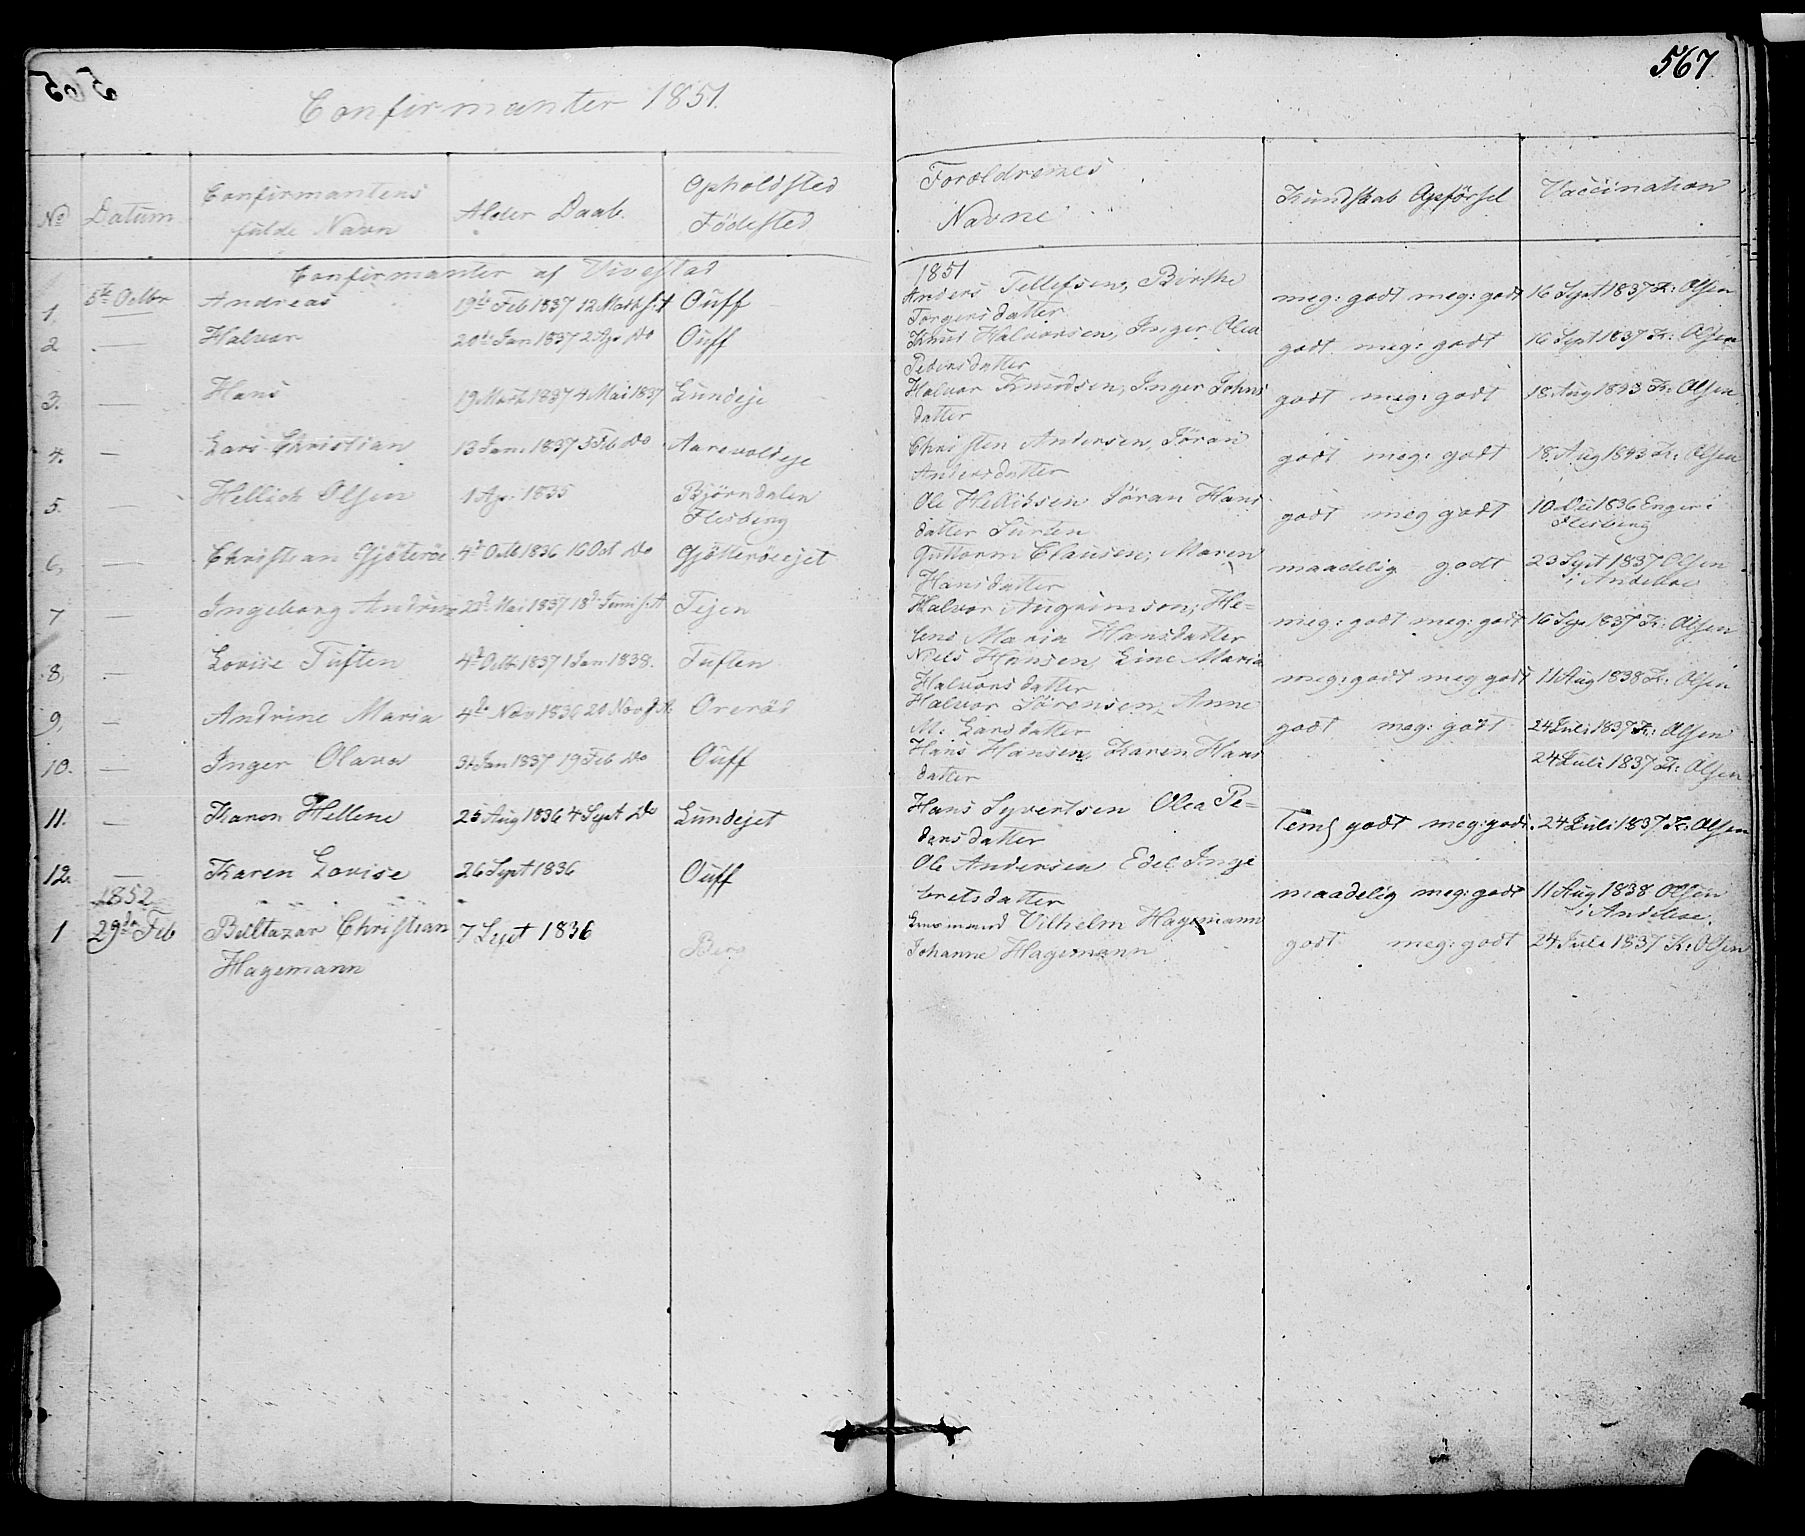 567
Confirmanter 1851.
No Datum Confirmantens fulde Navn Alder Daab. Opholdsted Födested Foroeldrenes Navne Kundskab Opförsel Vaccination
Confirmanter af Vivestad 1851
1. 5te Octbr Andreas 19de Feb 1837 12 Marts Ouff Anders Tellefsen, Birthe meg: godt meg: godt 16 Sept 1837 K: Olsen
Torgersdatter
2 — Halvor 20de Jan 1837 2 Apr Do Ouff Knud Halvorsen, Inger Olea godt meg: godt 16 Sept 1837 K: Olsen
Pedersdatter
3. — Hans 19 Marts 1837 4 Mai 1837 Lundeje Halvor Knudsen, Inger Johns godt meg: godt 18 Aug 1843 K: Olsen
datter
4. — Lars Christian 13 Jan. 1837 5 Feb Do Aarevoldeje Christen Andersen, Jöran godt meg: godt 18 Aug 1843 K: Olsen
Andersdatter
5. — Hellich Olsen 1 Apr. 1835 Björndalen Ole Helliksen Jöran Hans godt meg godt 10 Dec 1836 Enger i
Flesberg datter Flesberg
6, — Christian Gjöteröe 4de Octb 1836 16 Oct Do Gjötteröeejet Guttorm Clausen, Maren maadelig godt 23 Sept 1837 Olsen
Hansdatter i Andeboe
7 — Ingeborg Andrine 22de Mai 1837 18de Juni Tejen Halvor Augrimson, He= meg: godt meg: godt 16 Sep 1837 K: Olsen
lene Maria Hansdatter
8, — Lovise Tuften 4de Octb 1837 1 Jan. 1838. Tuften Niels Hansen, Line Maria meg: godt meg godt 11 Aug 1838 K: Olsen
Halvorsdatter
9, — Andrine Maria 4de Nov 1836 20 Nov Oreröd Halvor Sörensen, Anne godt meg: godt 24 Juli 1837 K: Olsen
M: Larsdatter
10. — Inger Olava 31 Jan 1837 19 Feb Do Ouff Hans Hansen, Karen Hans 24 Juli 1837 K: Olsen
datter
11. — Karen Hellene 25 Aug 1836 4 Sept Do Lundejet Hans Syvertsen Olea Pe= godt meg: godt. 24 Juli 1837 K: Olsen
dersdatter
12. — Karen Lovise 26 Sept 1836 Ouff Ole Andersen Edel Inge maadelig meg: godt 11 Aug 1838 Olsen
bretsdatter i Andeboe
1852
1 29de Feb Baltazar Christian 7 Sept 1836 Berg Vilhelm Hagemann godt meg: godt 24 Juli 1837 K: Olsen
Hagemann Johanne Hagemann